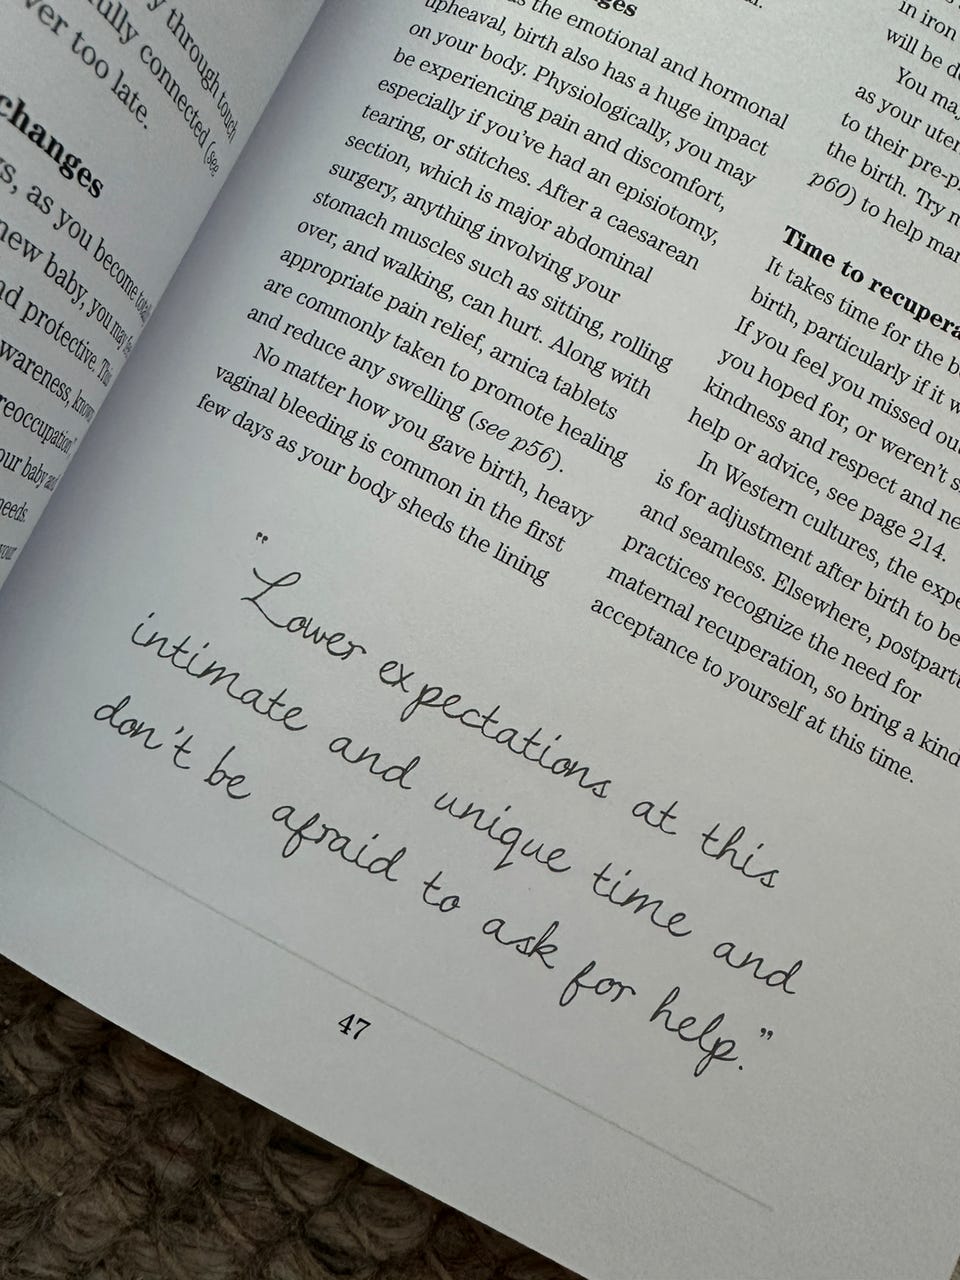 y through touch
fully connected (see
ver too late.
changes
as you become
new baby, you may
nd protective.
wareness,
our baby and
needs.
your
the emotional and hormonal
upheaval, birth also has a huge impact
on your body. Physiologically, you may
be experiencing pain and discomfort,
especially if you've had an episiotomy,
tearing, or stitches. After a caesarean
section, which is major abdominal
surgery, anything involving your
stomach muscles such as sitting, rolling
over, and walking, can hurt. Along with
appropriate pain relief, arnica tablets
are commonly taken to promote healing
and reduce any swelling (see p56).
No matter how you gave birth, heavy
vaginal bleeding is common in the first
few days as your body sheds the lining
in iron
will be
You may
as your
to their
the birth. Try
p60) to help
Time to
It takes time for the
birth, particularly if it
If you feel you missed
you hoped for, or weren't
kindness and respect and
help or advice, see page 214.
In Western cultures, the
is for adjustment after birth to be
and seamless. Elsewhere,
practices recognize the need for
maternal recuperation, so bring a kind
acceptance to yourself at this time.
"Lower expectations at this
intimate and unique time and
don't be afraid to ask for help."
47